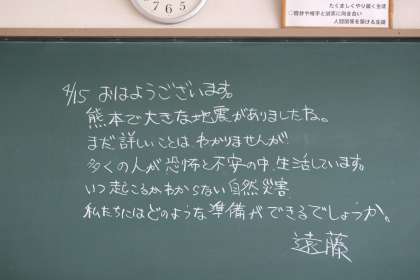 7 6 5
たくましくやり遂ぐ生徒
人間関係を築ける生徒
4/15 おはようございます。
熊本で大きな地震がありましたね。
まだ詳しいことはわかりませんが
多くの人が恐怖と不安の中、生活しています。
いつ起こるかわからない自然災害
私たちにはどのような準備ができるでしょうか。
遠藤